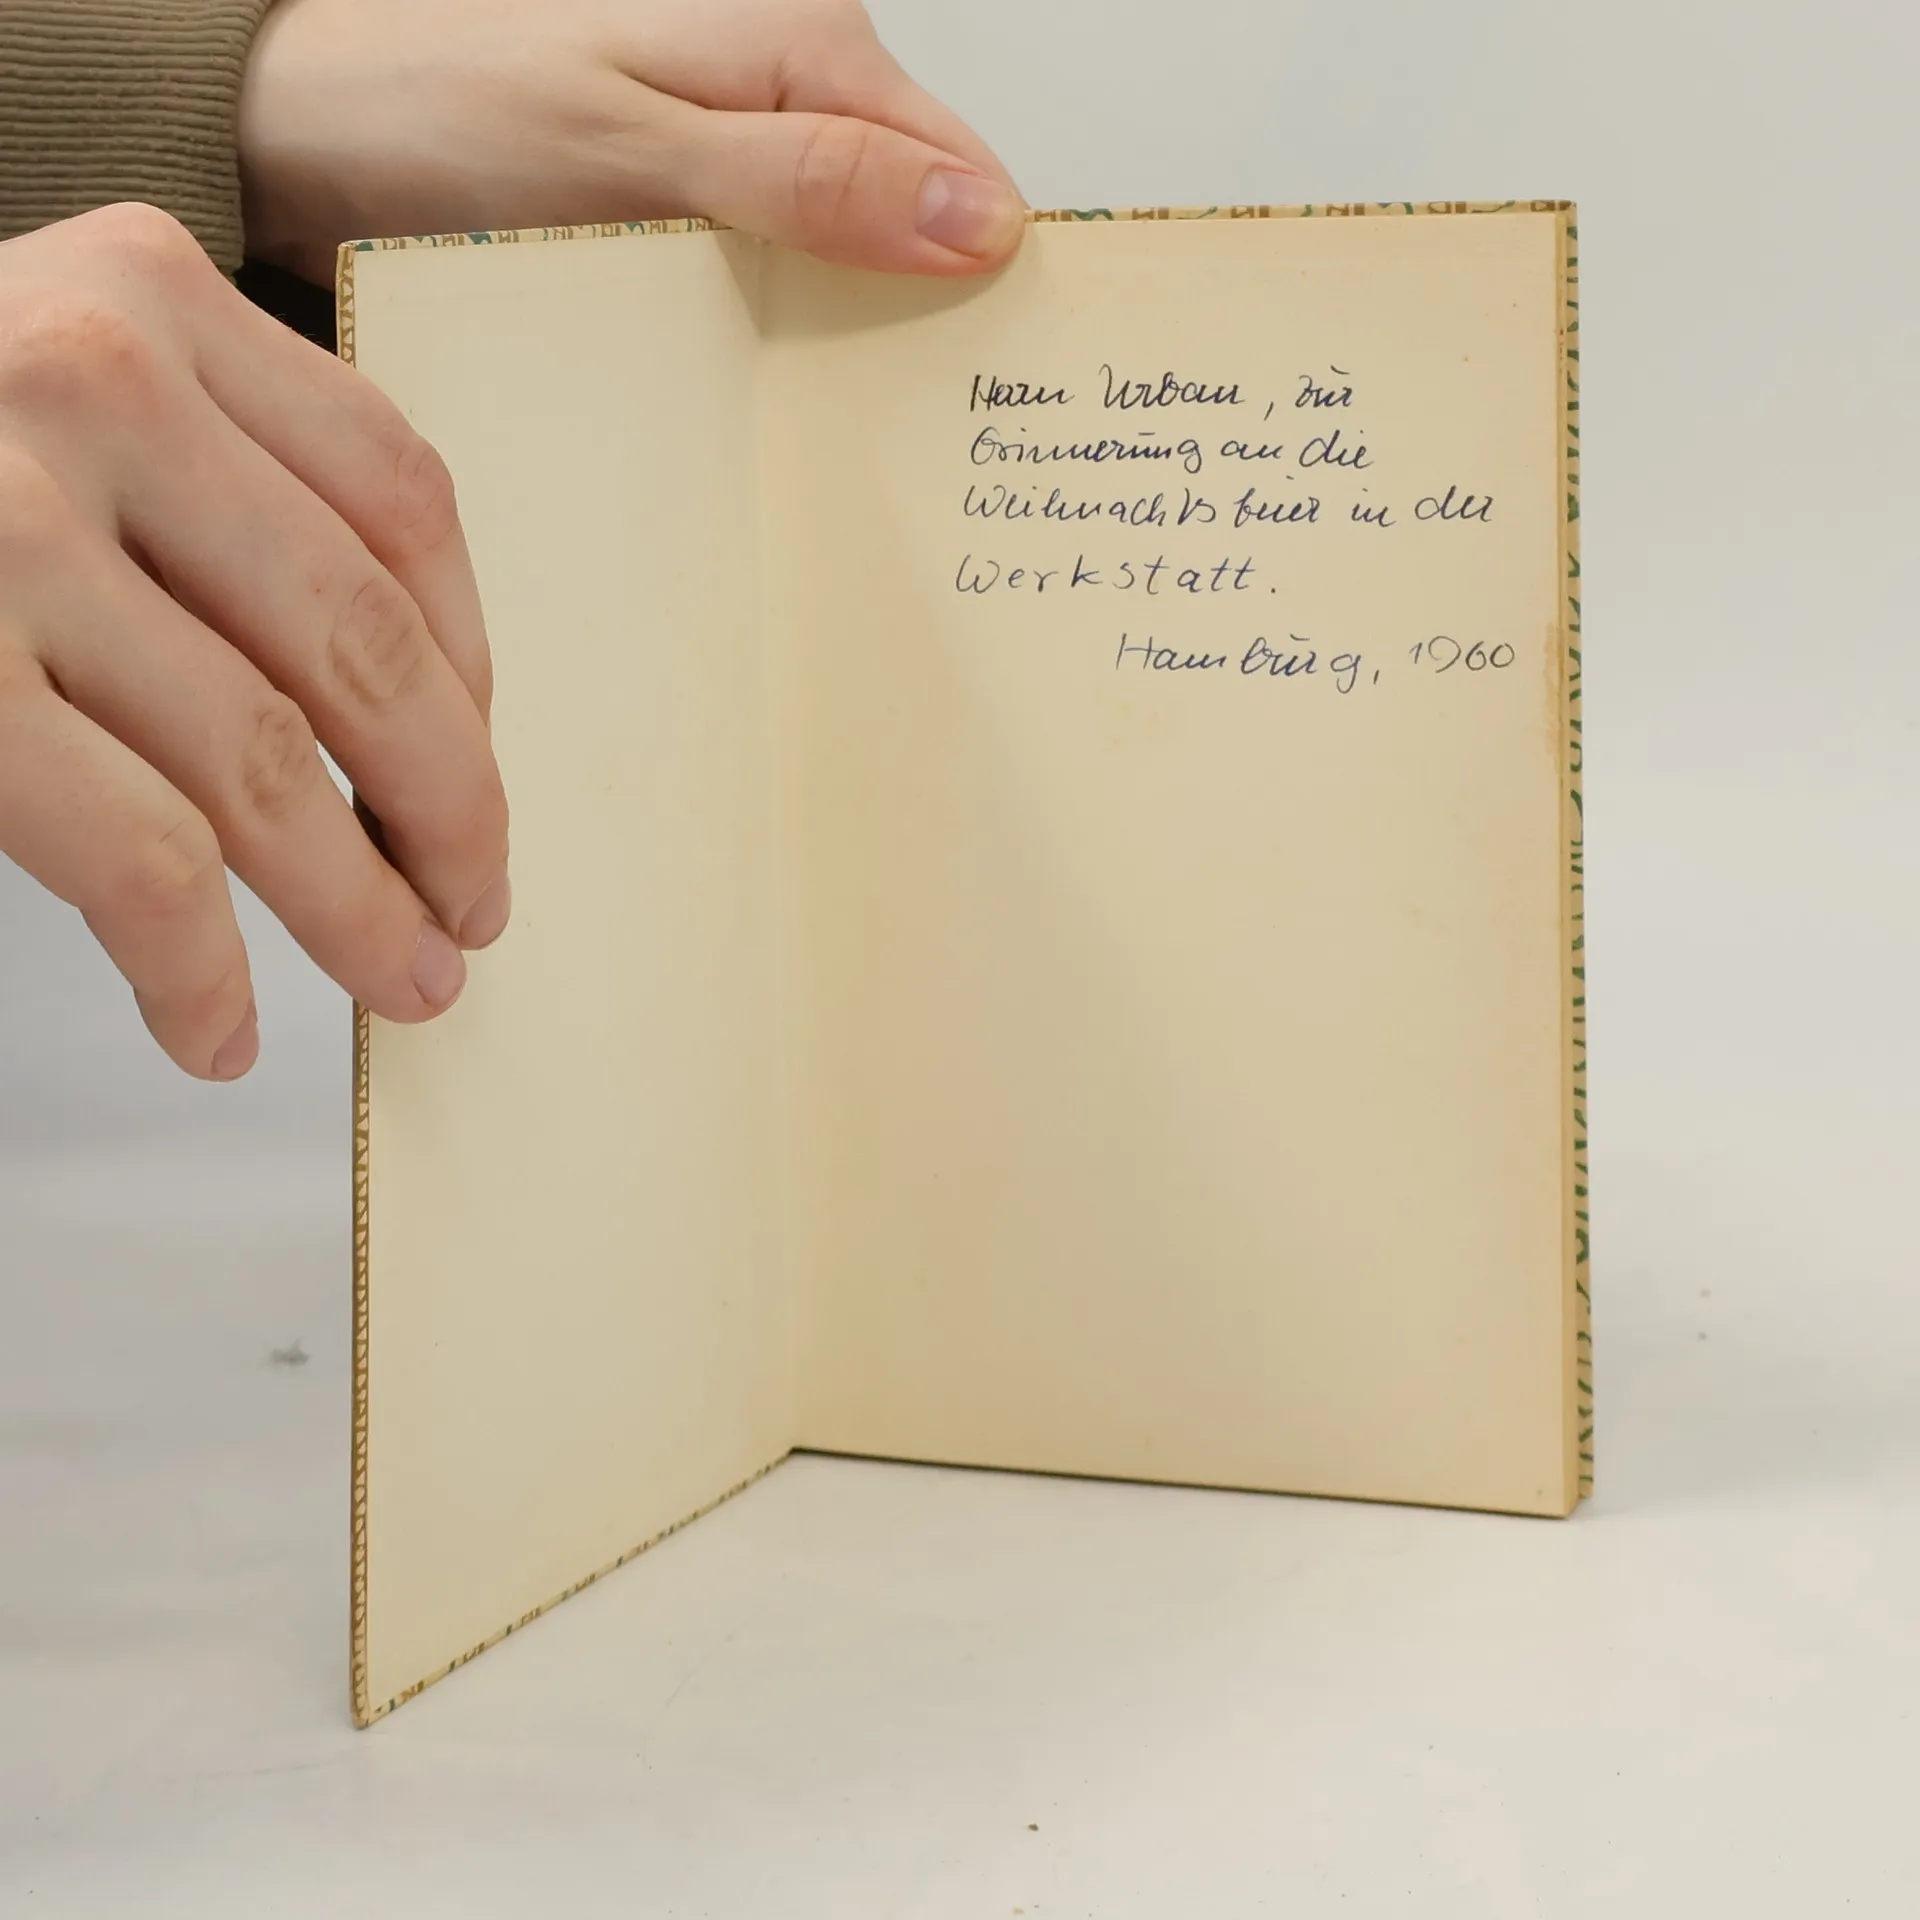 Herrn Urban, zur
Erinnerung an die
Weihnachtsfeier in der
Werkstatt.
Hamburg, 1960